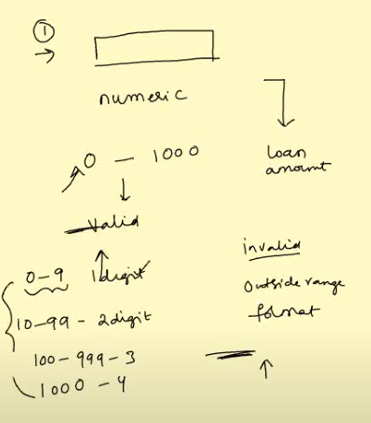 ①
numeric
0 - 1000
loan
amount
valid
0-9 1 digit
10-99 - 2 digit
100-999-3
1000-4
invalid
outside range
format